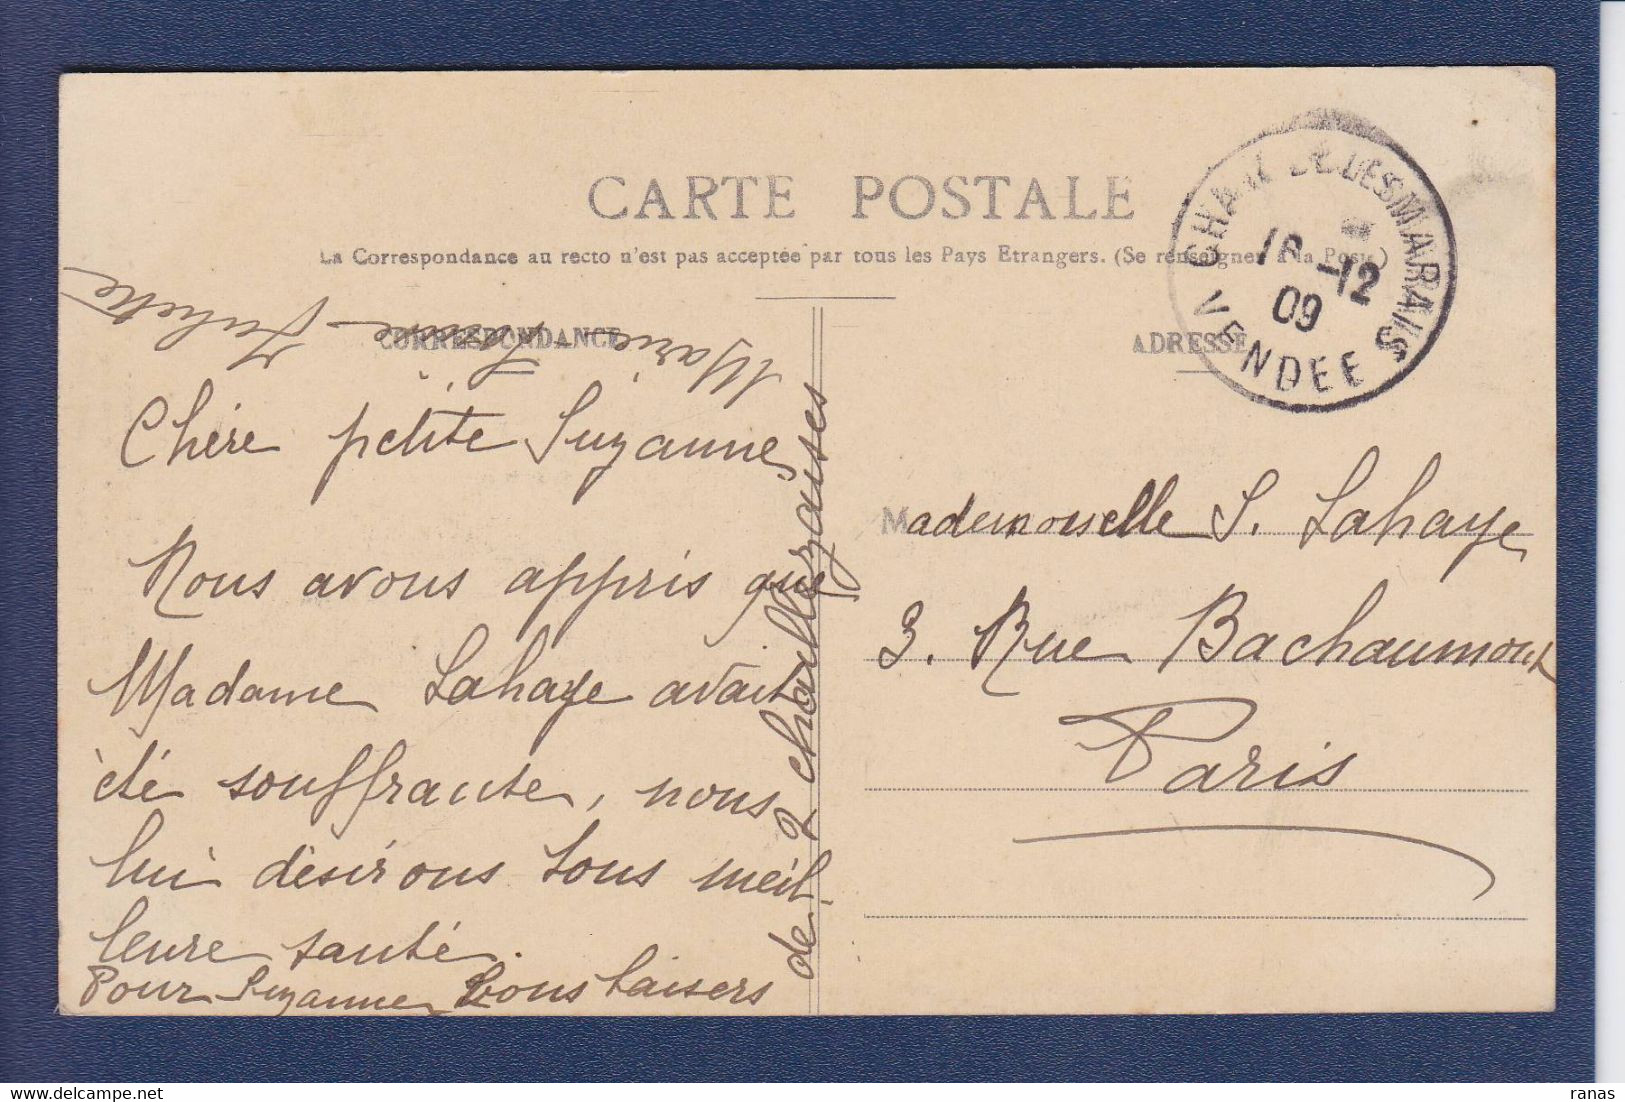 CARTE POSTALE
La Correspondance au recto n'est pas acceptée par tous les Pays Etrangers. (Se renseigner à la Poste)
CORRESPONDANCE
ADRESSE
DES MARAIS
VENDÉE
16 -12
09
Chère petite Suzanne
Nous avons appris que
Madame Lahaye avait
été souffrante, nous
lui désirons tous meil-
leure santé.
Pour Suzanne bons baisers
de 2 challezaises
Marie Juliette
Mademoiselle S. Lahaye
3. Rue Bachaumont
Paris
ranas